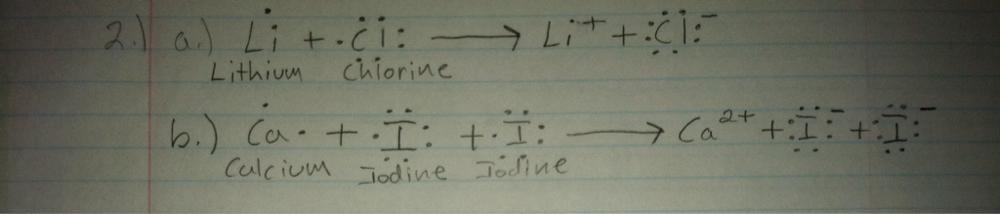 2.) a.) Li + ·Cl: → Li⁺ + :Cl:⁻
Lithium Chlorine
b.) Ca· + ·I: + ·I: → Ca²⁺ + :I:⁻ + :I:⁻
Calcium Iodine Iodine